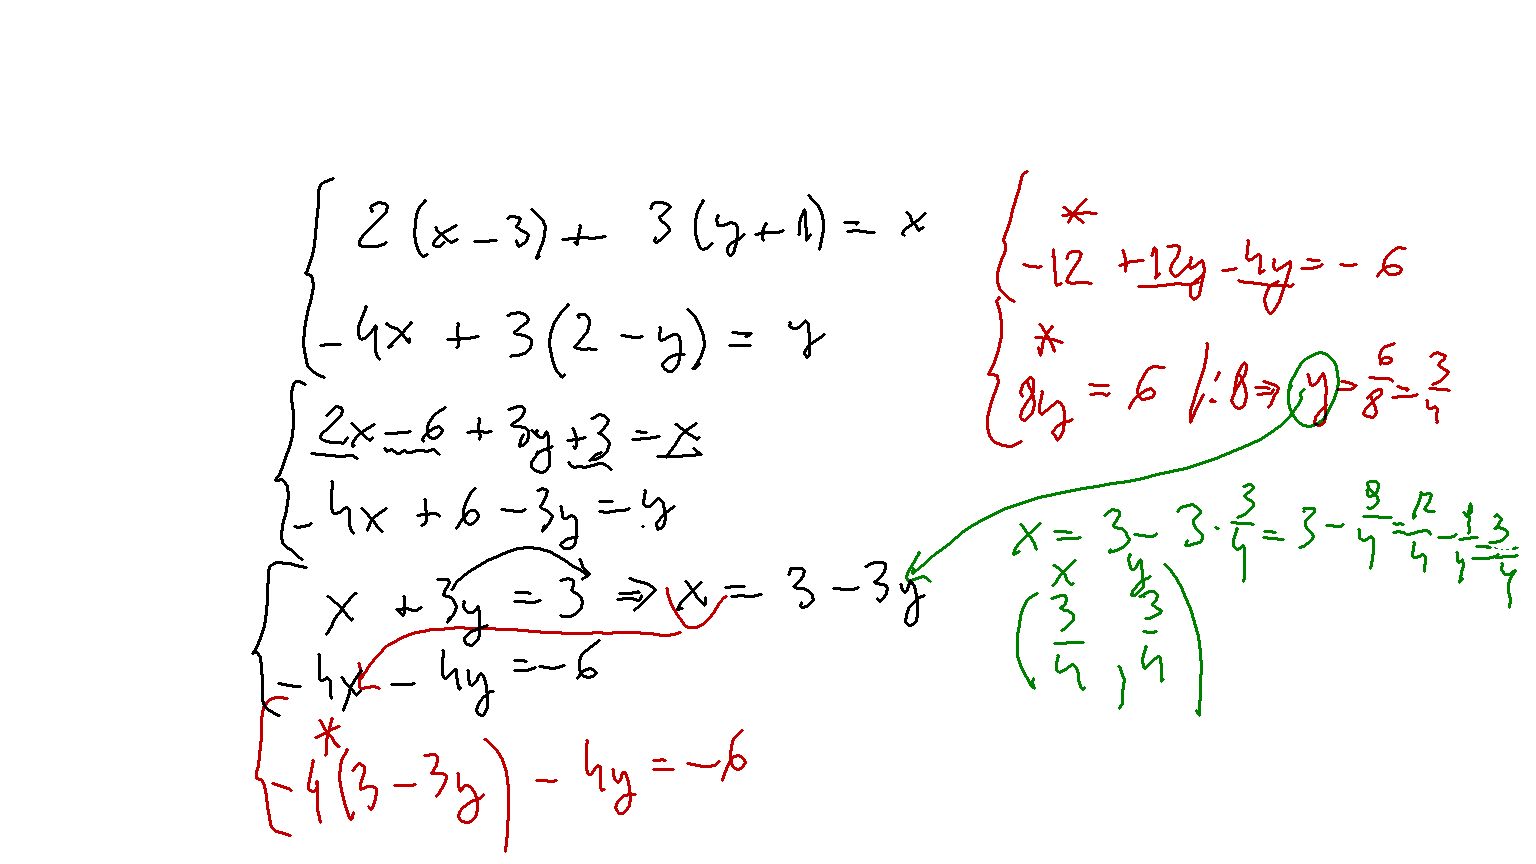 2(x-3)+ 3(y+1)= x
-4x + 3(2-y) = y
2x-6+3y+3=x
-4x+6-3y=y
x +3y=3 ⇒ x = 3-3y
-4x-4y=-6
*
-4(3-3y)-4y=-6
*
-12 +12y-4y=-6
*
8y = 6 /:8⇒ y=6/8=3/4
x = 3-3·3/4=3-9/4=12/4-9/4=3/4
x y
(3/4, 3/4)